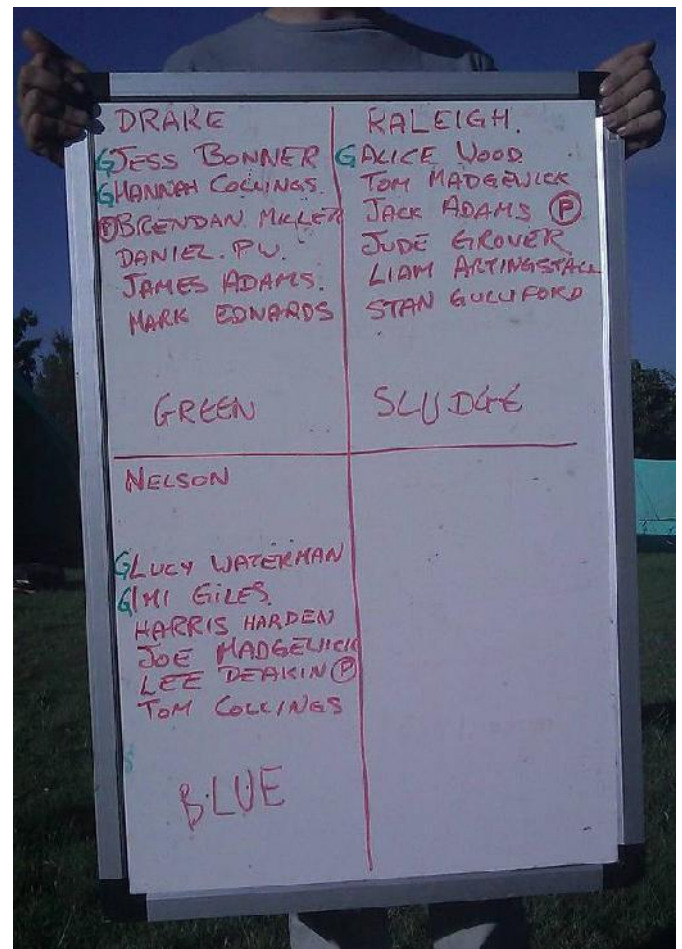 DRAKE
G JESS BONNER
G HANNAH COLLINGS.
Ⓟ BRENDAN MILLER
DANIEL. P.W.
JAMES ADAMS.
MARK EDWARDS
GREEN
RALEIGH.
G ALICE WOOD
TOM MADGEWICK
JACK ADAMS Ⓟ
JUDE GROVER
LIAM ARTINGSTALL
STAN GULLIFORD
SLUDGE
NELSON
G LUCY WATERMAN
G IMI GILES
HARRIS HARDEN
JOE MADGEWICK
LEE DEAKIN Ⓟ
TOM COLLINGS
BLUE